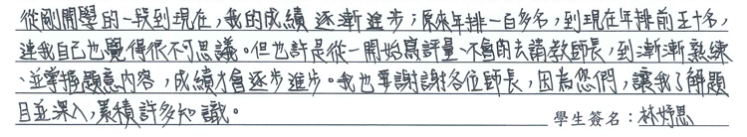 從剛開學的一段到現在，我的成績逐漸進步；原來年排一百多名，到現在年排前五十名，
連我自己也覺得很不可思議。但也許是從一開始寫評量、不會的去請教師長，到漸漸熟練
、並掌握題意內容，成績才會逐步進步。我也要謝謝各位師長，因為您們，讓我了解題
目並深入，累積許多知識。
學生簽名：林妤恩